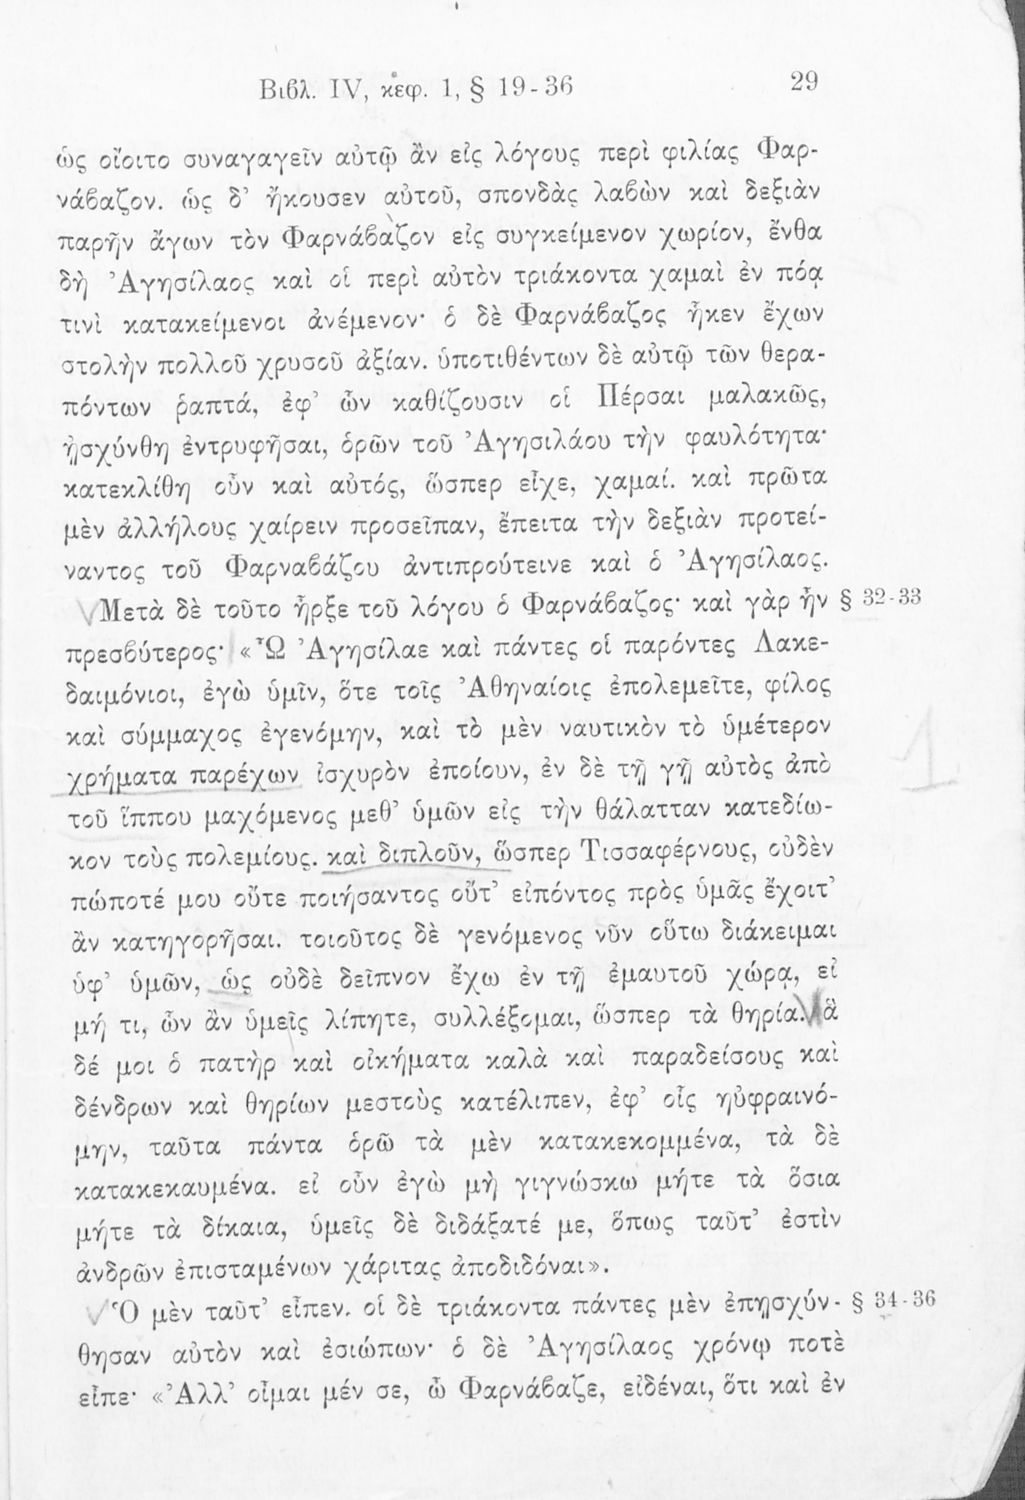 Βιβλ. IV, κεφ. 1, § 19-36 29
ὡς οἴοιτο συναγαγεῖν αὐτῷ ἂν εἰς λόγους περὶ φιλίας Φαρ-
νάβαζον. ὡς δ’ ἤκουσεν αὐτοῦ, σπονδὰς λαβὼν καὶ δεξιὰν
παρῆν ἄγων τὸν Φαρνάβαζον εἰς συγκείμενον χωρίον, ἔνθα
δὴ Ἀγησίλαος καὶ οἱ περὶ αὐτὸν τριάκοντα χαμαὶ ἐν πόᾳ
τινὶ κατακείμενοι ἀνέμενον· ὁ δὲ Φαρνάβαζος ἧκεν ἔχων
στολὴν πολλοῦ χρυσοῦ ἀξίαν. ὑποτιθέντων δὲ αὐτῷ τῶν θερα-
πόντων ῥαπτά, ἐφ’ ὧν καθίζουσιν οἱ Πέρσαι μαλακῶς,
ᾐσχύνθη ἐντρυφῆσαι, ὁρῶν τοῦ Ἀγησιλάου τὴν φαυλότητα·
κατεκλίθη οὖν καὶ αὐτός, ὥσπερ εἶχε, χαμαί. καὶ πρῶτα
μὲν ἀλλήλους χαίρειν προσεῖπαν, ἔπειτα τὴν δεξιὰν προτεί-
ναντος τοῦ Φαρναβάζου ἀντιπρούτεινε καὶ ὁ Ἀγησίλαος.
Μετὰ δὲ τοῦτο ἦρξε τοῦ λόγου ὁ Φαρνάβαζος· καὶ γὰρ ἦν § 32-33
πρεσβύτερος· «Ὦ Ἀγησίλαε καὶ πάντες οἱ παρόντες Λακε-
δαιμόνιοι, ἐγὼ ὑμῖν, ὅτε τοῖς Ἀθηναίοις ἐπολεμεῖτε, φίλος
καὶ σύμμαχος ἐγενόμην, καὶ τὸ μὲν ναυτικὸν τὸ ὑμέτερον
χρήματα παρέχων ἰσχυρὸν ἐποίουν, ἐν δὲ τῇ γῇ αὐτὸς ἀπὸ
τοῦ ἵππου μαχόμενος μεθ’ ὑμῶν εἰς τὴν θάλατταν κατεδίω-
κον τοὺς πολεμίους. καὶ διπλοῦν, ὥσπερ Τισσαφέρνους, οὐδὲν
πώποτέ μου οὔτε ποιήσαντος οὔτ’ εἰπόντος πρὸς ὑμᾶς ἔχοιτ’
ἂν κατηγορῆσαι. τοιοῦτος δὲ γενόμενος νῦν οὕτω διάκειμαι
ὑφ’ ὑμῶν, ὡς οὐδὲ δεῖπνον ἔχω ἐν τῇ ἐμαυτοῦ χώρᾳ, εἰ
μή τι, ὧν ἂν ὑμεῖς λίπητε, συλλέξομαι, ὥσπερ τὰ θηρία. ἃ
δέ μοι ὁ πατὴρ καὶ οἰκήματα καλὰ καὶ παραδείσους καὶ
δένδρων καὶ θηρίων μεστοὺς κατέλιπεν, ἐφ’ οἷς ηὐφραινό-
μην, ταῦτα πάντα ὁρῶ τὰ μὲν κατακεκομμένα, τὰ δὲ
κατακεκαυμένα. εἰ οὖν ἐγὼ μὴ γιγνώσκω μήτε τὰ ὅσια
μήτε τὰ δίκαια, ὑμεῖς δὲ διδάξατέ με, ὅπως ταῦτ’ ἐστὶν
ἀνδρῶν ἐπισταμένων χάριτας ἀποδιδόναι».
Ὁ μὲν ταῦτ’ εἶπεν. οἱ δὲ τριάκοντα πάντες μὲν ἐπῃσχύν- § 34-36
θησαν αὐτὸν καὶ ἐσιώπων· ὁ δὲ Ἀγησίλαος χρόνῳ ποτὲ
εἶπε· «Ἀλλ’ οἶμαι μέν σε, ὦ Φαρνάβαζε, εἰδέναι, ὅτι καὶ ἐν